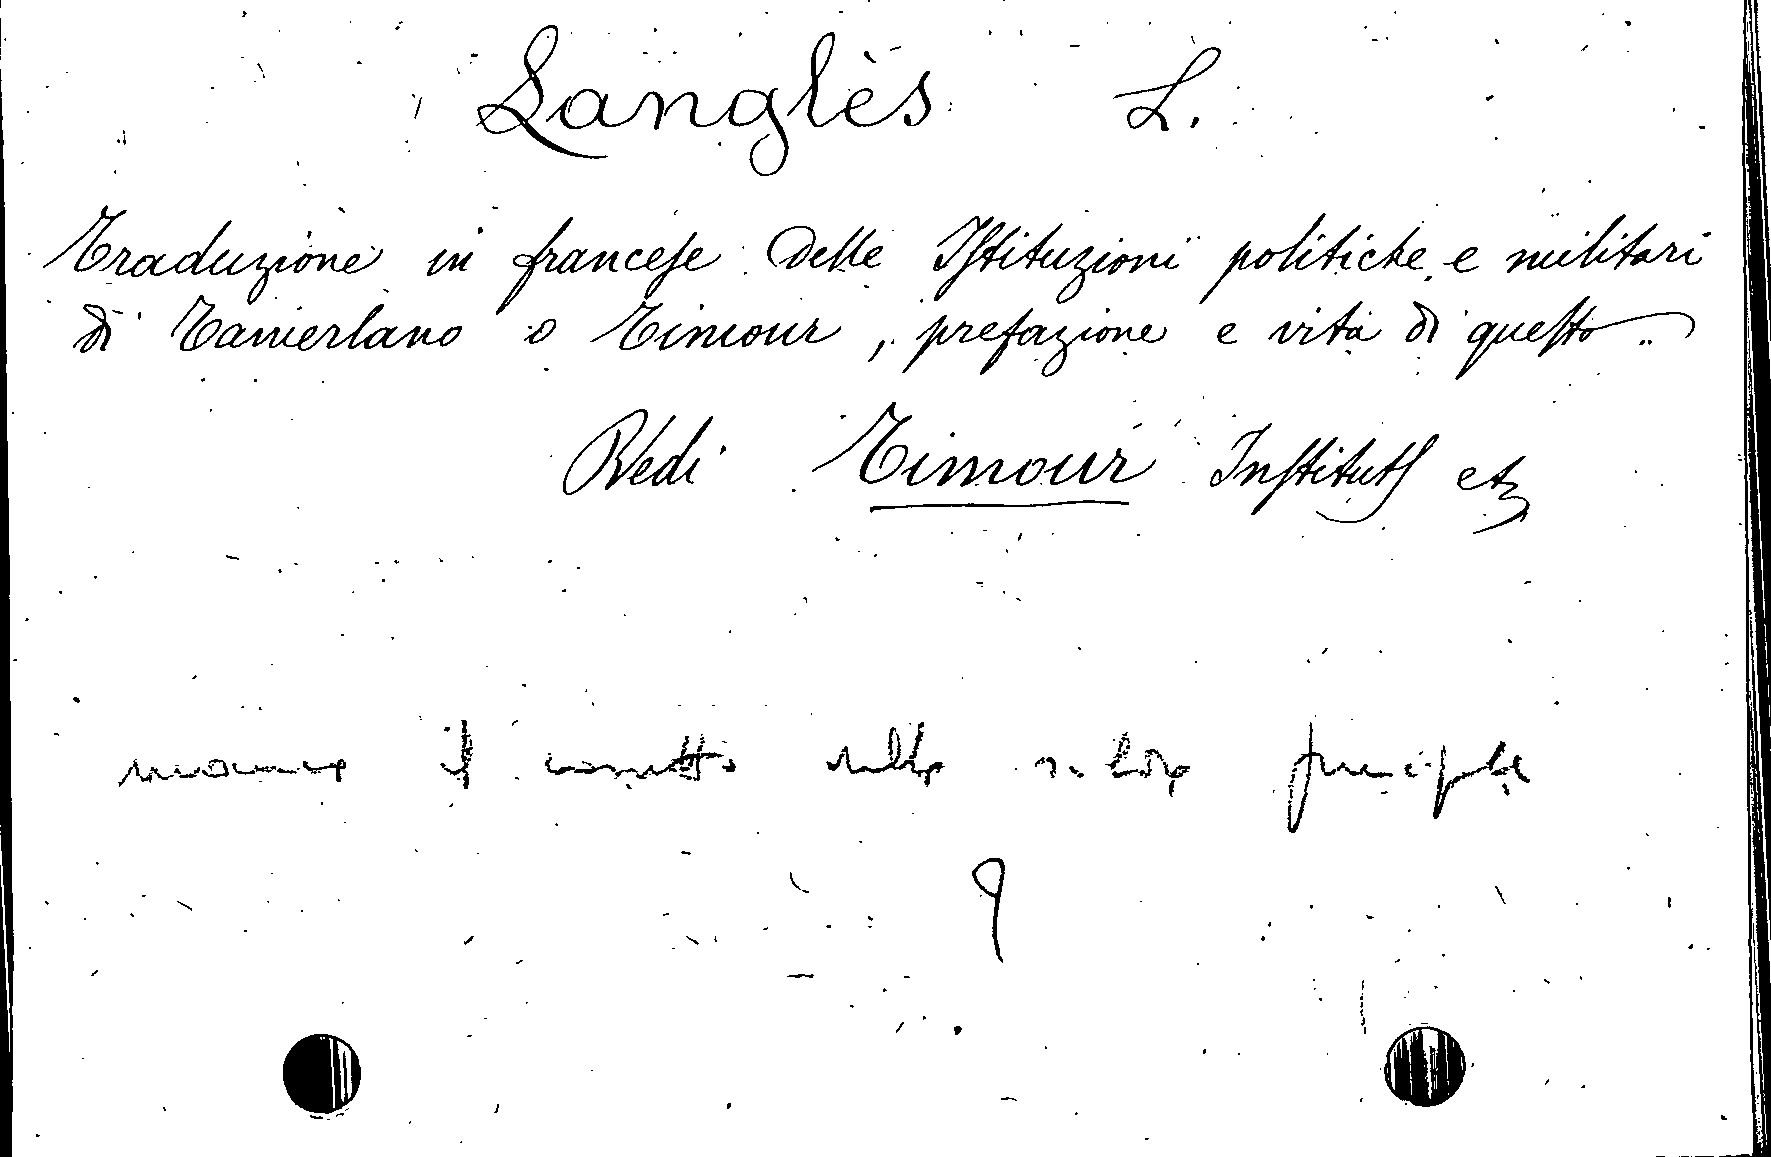 Langlès L.
Traduzione in francese delle Istituzioni politiche e militari
di Tamerlano o Timour, prefazione e vita di questo.
Vedi Timour Instituts etc
manca il corretto nella scheda principale